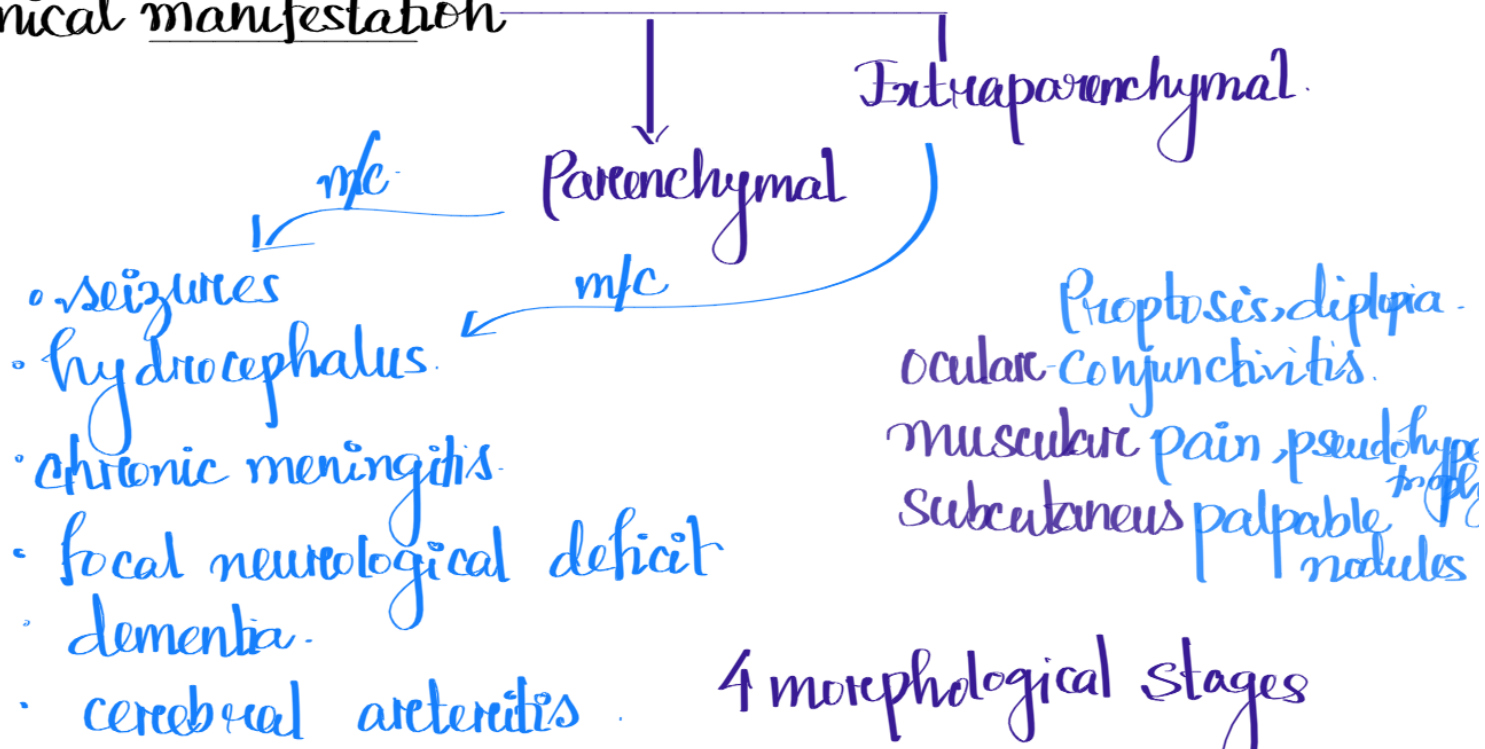 nical manifestation
Extraparenchymal.
Parenchymal
m/c
m/c
• seizures
• hydrocephalus.
• chronic meningitis.
• focal neurological deficit
• dementia.
• cerebral arteritis.
Proptosis, diplopia.
ocular - conjunctivitis.
muscular pain, pseudohype
trophy
Subcutaneus palpable
nodules
4 morphological stages